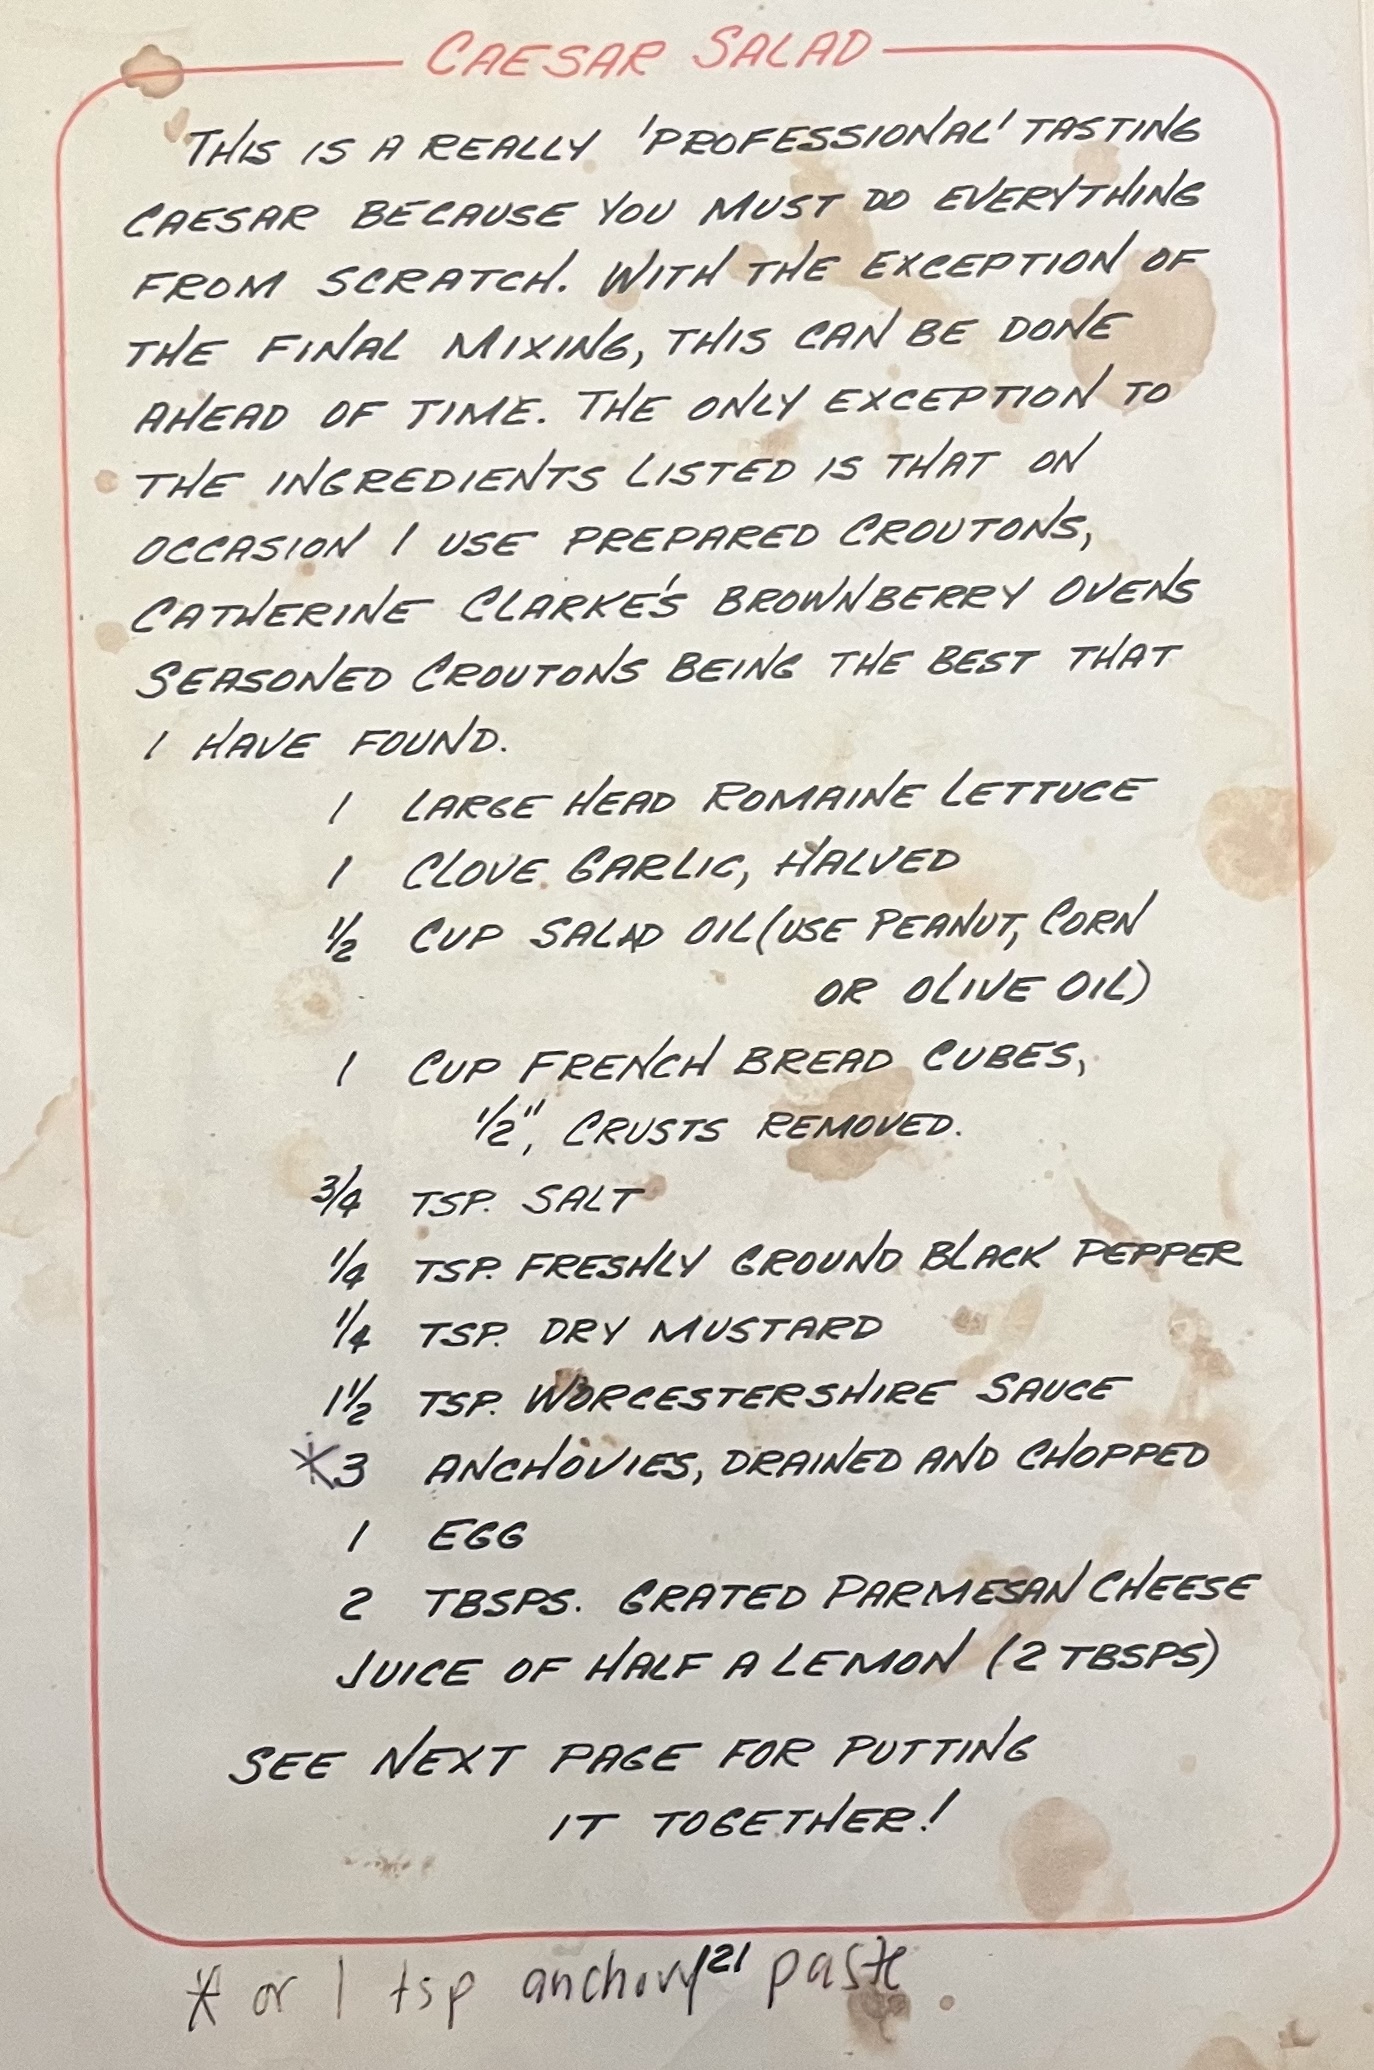 CAESAR SALAD
THIS IS A REALLY 'PROFESSIONAL' TASTING
CAESAR BECAUSE YOU MUST DO EVERYTHING
FROM SCRATCH. WITH THE EXCEPTION OF
THE FINAL MIXING, THIS CAN BE DONE
AHEAD OF TIME. THE ONLY EXCEPTION TO
THE INGREDIENTS LISTED IS THAT ON
OCCASION I USE PREPARED CROUTONS,
CATHERINE CLARKE'S BROWNBERRY OVENS
SEASONED CROUTONS BEING THE BEST THAT
I HAVE FOUND.
1 LARGE HEAD ROMAINE LETTUCE
1 CLOVE GARLIC, HALVED
1/2 CUP SALAD OIL (USE PEANUT, CORN
OR OLIVE OIL)
1 CUP FRENCH BREAD CUBES,
1/2", CRUSTS REMOVED.
3/4 TSP. SALT
1/4 TSP. FRESHLY GROUND BLACK PEPPER
1/4 TSP. DRY MUSTARD
1 1/2 TSP. WORCESTERSHIRE SAUCE
*3 ANCHOVIES, DRAINED AND CHOPPED
1 EGG
2 TBSPS. GRATED PARMESAN CHEESE
JUICE OF HALF A LEMON (2 TBSPS)
SEE NEXT PAGE FOR PUTTING
IT TOGETHER!
121
* or 1 tsp anchovy paste.